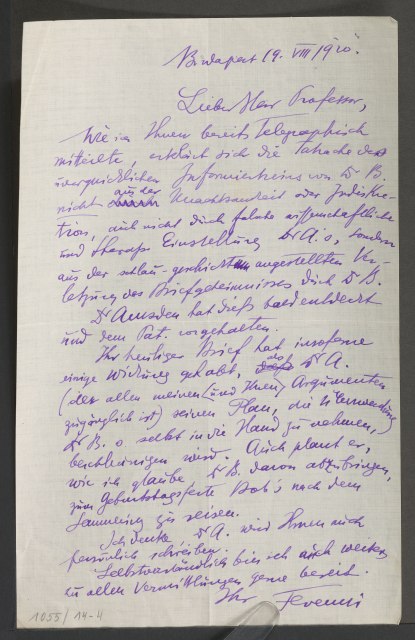 Budapest 19. VIII 1920.
Lieber Herr Professor,
Wie ich Ihnen bereits telegraphisch
mitteilte, erklärt sich die Tatsache des
unerquicklichen Informiertseins von Dr B.
nicht aus der Unachtsamkeit oder Indiskre-
tion, auch nicht durch falsche wissenschaftliche
und therap. Einstellung Dr A.'s, sondern
aus der schlau-geschickt angestellten Ver-
letzung des Briefgeheimnisses durch Dr B.
Dr Amsden hat dies bald entdeckt
und dem Pat. vorgehalten.
Ihr heutiger Brief hat insoferne
einige Wirkung gehabt, als Dr A.
(der allen meinen (und Ihren) Argumenten
zugänglich ist) seinen Plan, die
Dr B.s selbst in die Hand zu nehmen,
beschleunigen wird. Auch plant er,
wie ich glaube, Dr B. davon abzubringen,
zum Geburtstagsfeste Bob's nach dem
Semmering zu reisen.
Ich denke, Dr A. wird Ihnen auch
persönlich schreiben.
Selbstverständlich bin ich auch weiter
zu allen Vermittlungen gerne bereit.
Ihr Ferenczi
1055/14-4